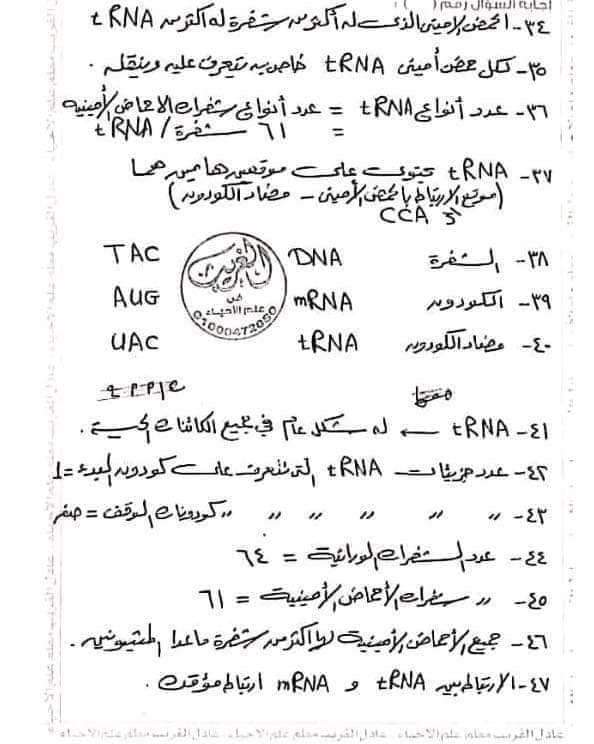 إجابة السؤال رقم ( ) :
٣٤- الحمض الاميني الذي له أكثر من شفرة له اكثر من tRNA
٣٥- لكل حمض أميني tRNA خاص به يتعرف عليه وينقله .
٣٦- عدد أنواع tRNA = عدد أنواع شفرات الاحماض الأمينية
= ٦١ شفرة / tRNA
٣٧- tRNA تحتوى على موقعين هامين هما
(موقع الارتباط بالحمض الأميني - مضاد الكودون)
CCA 3'
٣٨- الشفرة DNA TAC
٣٩- الكودون mRNA AUG
٤٠- مضاد الكودون tRNA UAC
الغريب
في
علم الأحياء
01000472050
٤١- tRNA ← له شكل عام في جميع الكائنات الحية .
٤٢- عدد جزيئات tRNA التى تتعرف على كودون البدء = 1
٤٣- 〃 〃 〃 〃 〃 〃 كودونات الوقف = صفر
٤٤- عدد الشفرات الوراثية = ٦٤
٤٥- 〃 شفرات الأحماض الأمينية = ٦١
٤٦- جميع الأحماض الأمينية لها اكثر من شفرة ماعدا المثيونين .
٤٧- الارتباط بين tRNA و mRNA ارتباط مؤقت .
عادل الغريب معلم علم الاحياء . عادل الغريب معلم علم الاحياء . عادل الغريب معلم علم الاحياء